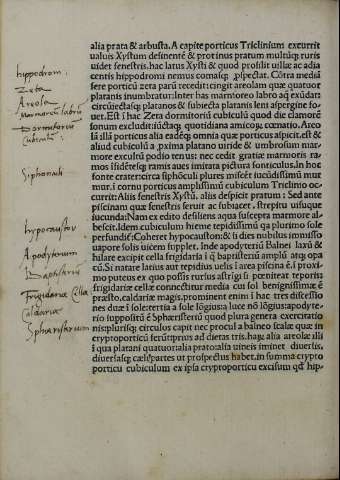 alia prata & arbusta. A capite porticus Triclinium excurrit
ualuis Xystum desinentē & protinus pratum multūq; ruris
uidet fenestris. hac latus Xysti & quod prosilit uillæ ac adia
centis hippodromi nemus comasq; ꝓspectat. Cōtra mediā
fere porticū zeta parū recedit: cingit areolam quæ quatuor
platanis inumbratur: Inter has marmoreo labro aq̄ exūdat
circūiectasq; platanos & subiecta platanis leni aspergine fo
uet. Est ī hac Zeta dormitoriū cubiculū quod diē clamorē
sonum excludit: iūctaq; quotidiana amicoꝝ cœnatio. Areo
lā illā porticus alia eadēq; omnia quæ porticus aspicit. est &
aliud cubiculū a ꝓxima platano uiride & umbrosum mar
more excultū podio tenus: nec cedit gratiæ marmoris ra
mos īsidētesq; ramis aues imitata pictura fonticulus. In hoc
fonte crater circa siphōculi plures miscēt iucūdissimū mur
mur. ī cornu porticus amplissimū cubiculum Triclinio oc
currit: Aliis fenestris Xystū, aliis despicit pratum: Sed ante
piscinam quæ fenestris seruit ac subiacet, strepitu uisuque
iucunda: Nam ex edito desiliens aqua suscepta marmore al
bescit. Idem cubiculum hieme tepidissimū q̄a plurimo sole
perfundit: Coheret hypocauston: & si dies nubilus immisso
uapore solis uicem supplet. Inde apodyteriū Balnei laxū &
hilare excipit cella frigidaria ī q̄ baptisteriū amplū atq; opa
cū. Si natare latius aut tepidius uelis ī area piscina ē. ī proxi
mo puteus ex quo possis rursus astrigi si pœniteat teporis
frigidariæ cellæ connectitur media cui sol benignissimæ ē
præsto. caldariæ magis. prominet enim ī hac tres discessio
nes duæ ī sole: tertia a sole lōgius: a luce nō lōgius: apodyte-
rio suppositū ē Sphæristeriū quod plura genera exercitatio
nis: plurisq; circulos capit nec procul a balneo scalæ quæ in
cryptoporticū ferūt: prius ad dietas tris. haꝝ alia areolæ illi
ī qua platani quatuor: alia prato: alia uineis iminet diuersis,
diuersasq; cæli ꝑtes ut prospectus habet. in summa crypto
porticu cubiculum ex ipsa cryptoporticu excisum qd̄ hip-
hippodrom:
Zeta
Areola
Marmoreū labrū
Dormitoriū
Cubiculū:
Siphunculi
hypocaustor
Apodyterium
Baptisteriū
Frigidariæ Cellæ
Caldariæ
Sphæristerium